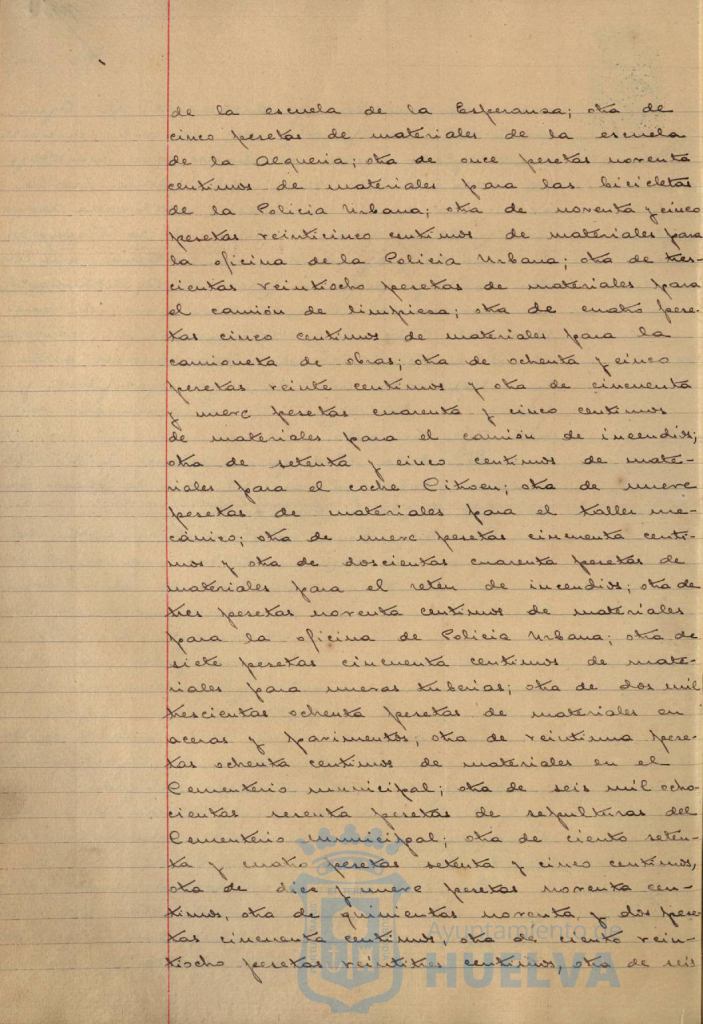 de la escuela de la Esperansa; otra de
cinco pesetas de materiales de la escuela
de la Alqueria; otra de once pesetas noventa
centimos de materiales para las bicicletas
de la Policia Urbana; otra de noventa y cinco
pesetas veinticinco centimos de materiales para
la oficina de la Policia Urbana; otra de tres-
cientas veintiocho pesetas de materiales para
el camión de limpiesa; otra de cuatro pese-
tas cinco centimos de materiales para la
camioneta de obras; otra de ochenta y cinco
pesetas veinte centimos y otra de cincuenta
y nueve pesetas cuarenta y cinco centimos
de materiales para el camión de incendios;
otra de setenta y cinco centimos de mate-
riales para el coche Citroen; otra de nueve
pesetas de materiales para el taller me-
cánico; otra de nueve pesetas cincuenta centi-
mos y otra de doscientas cuarenta pesetas de
materiales para el reten de incendios; otra de
tres pesetas noventa centimos de materiales
para la oficina de Policia Urbana; otra de
siete pesetas cincuenta centimos de mate-
riales para nuevas tuberias; otra de dos mil
trescientas ochenta pesetas de materiales en
aceras y pavimentos; otra de veintiuna pese-
tas ochenta centimos de materiales en el
Cementerio municipal; otra de seis mil ocho-
cientas pesetas de sepulturas del
Cementerio municipal; otra de ciento seten-
ta y cuatro pesetas setenta y cinco centimos,
otra de dies y nueve pesetas noventa cen-
timos, otra de quinientas noventa y dos pese-
tas cincuenta centimos, otra de ciento vein-
tiocho pesetas veintitres centimos, otra de seis
Ayuntamiento de
HUELVA